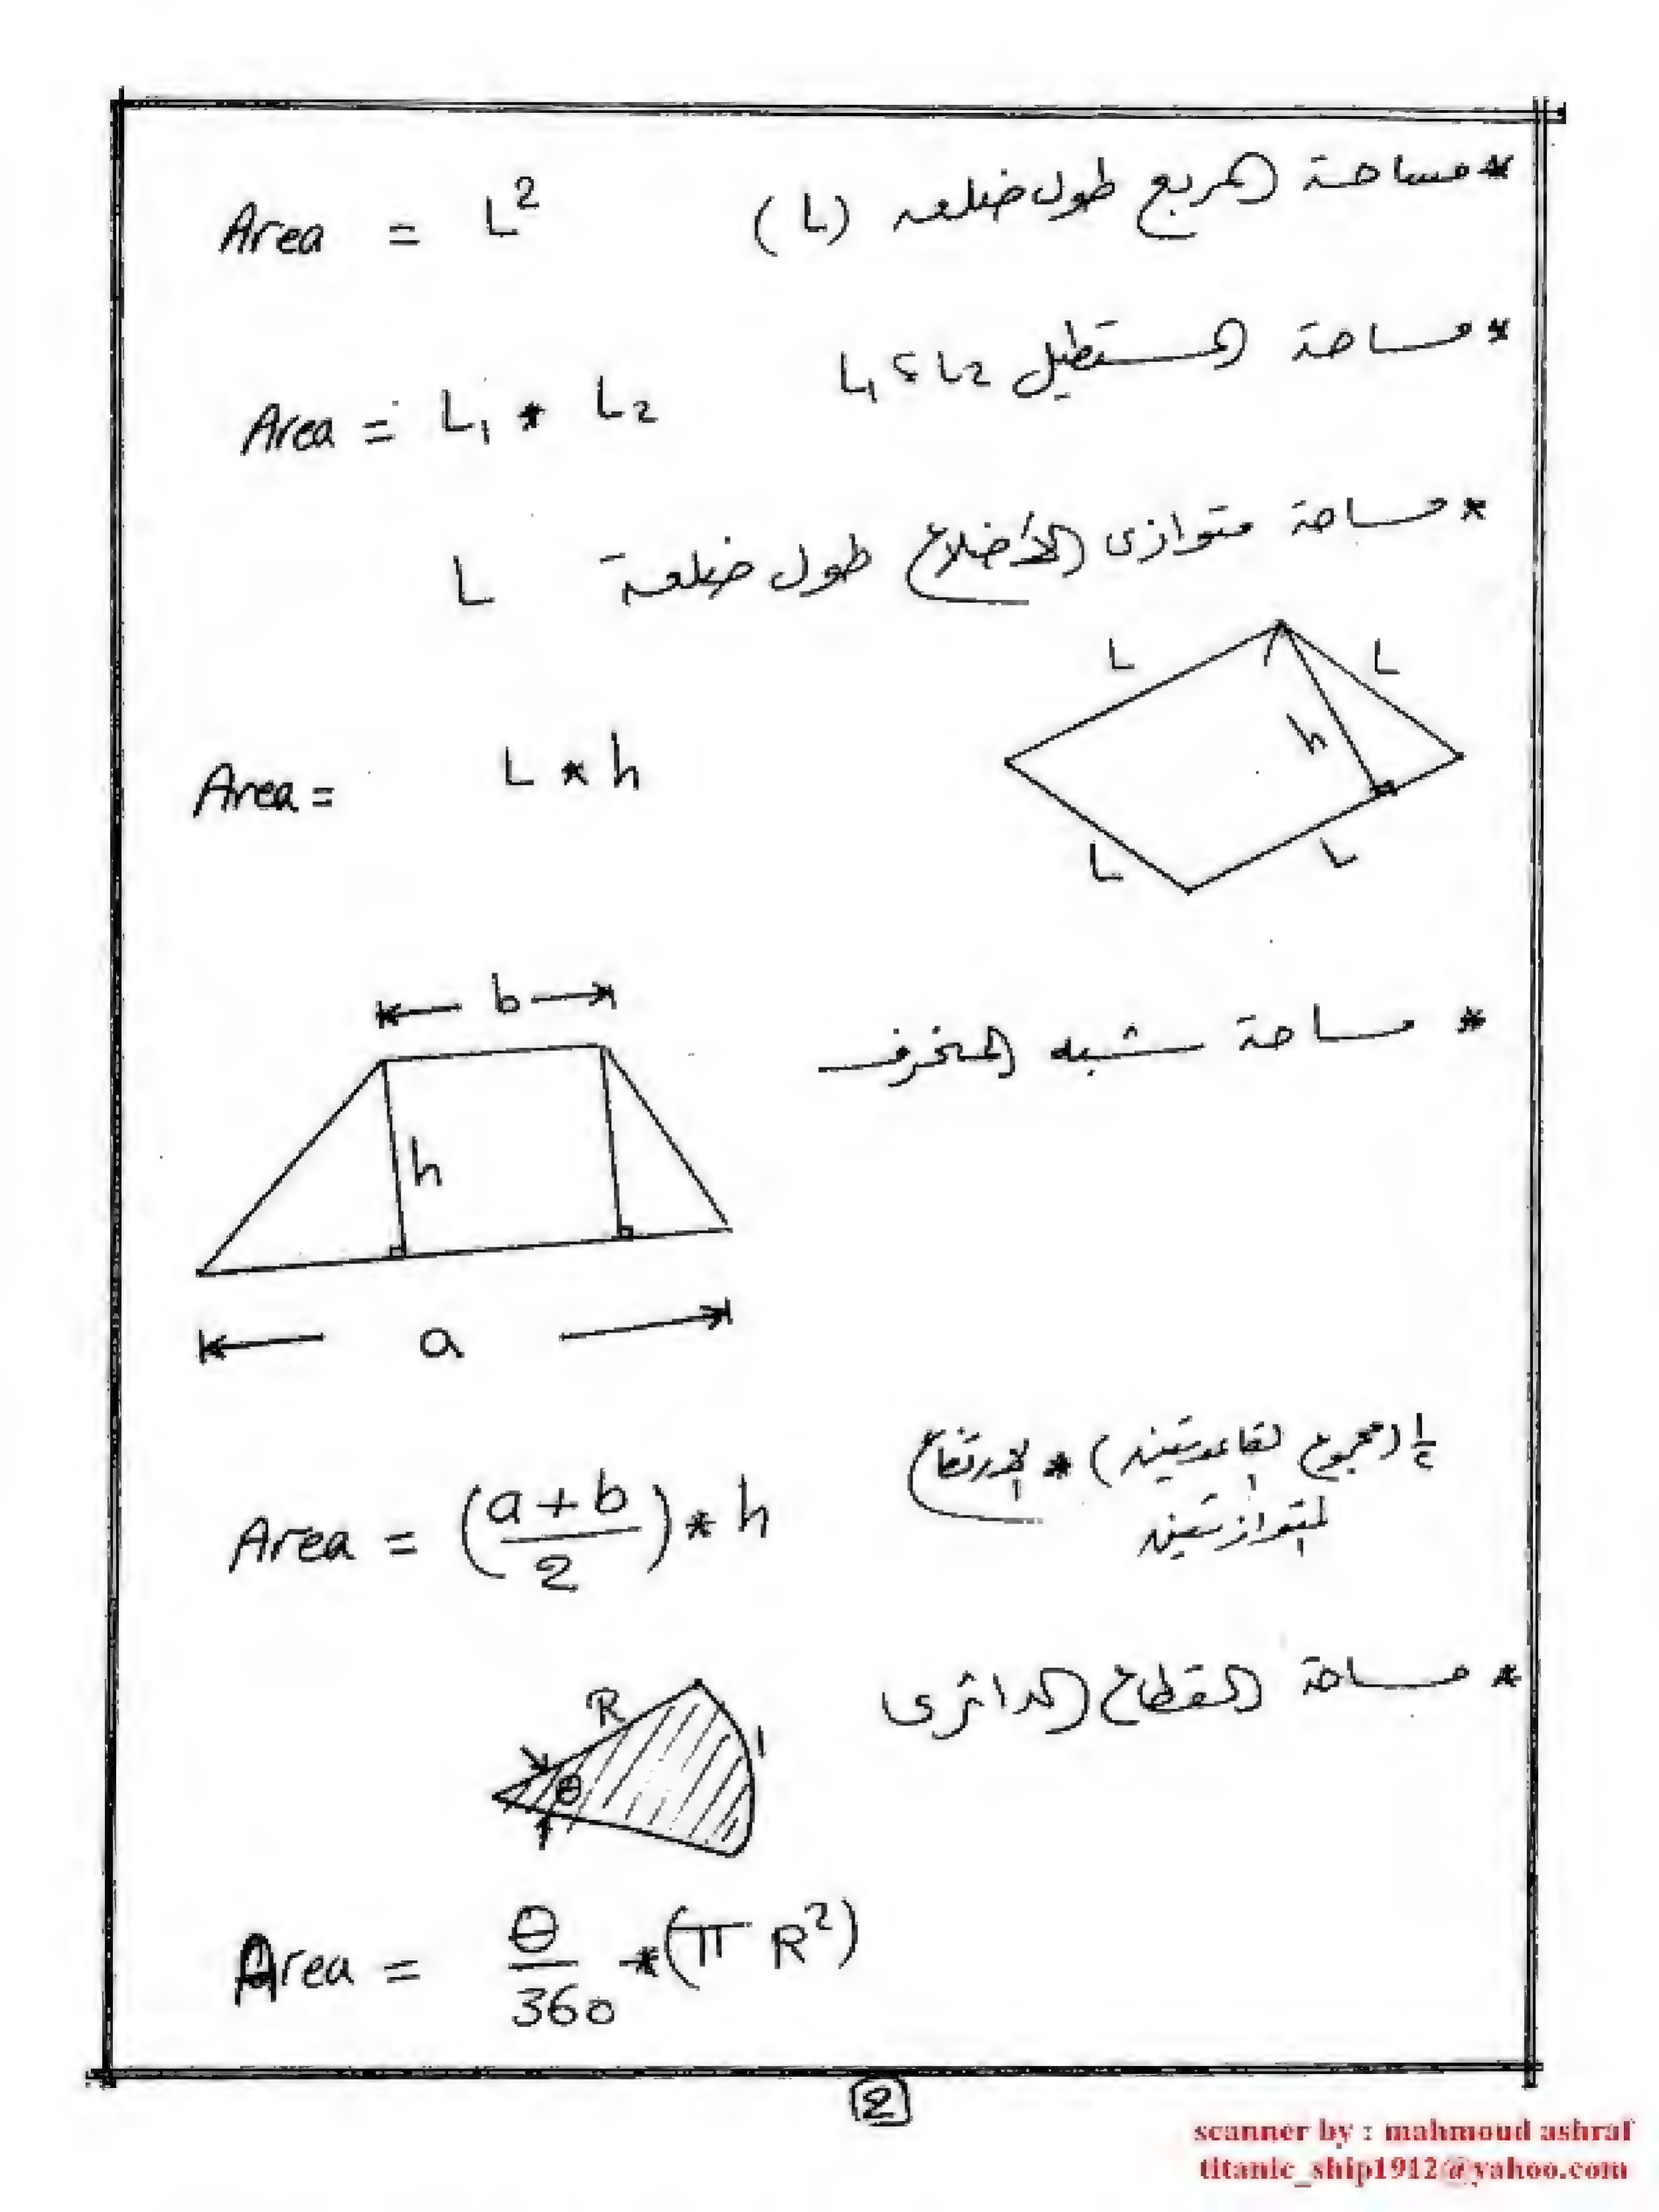 * مساحة المربع طول ضلعه (L)
Area = L²
* مساحة المستطيل L1 ، L2
Area = L₁ * L₂
* مساحة متوازى الأضلاع طول ضلعة L
L
L
h
Area = L * h
L
L
b
* مساحة شبه المنحرف
h
a
½ (مجموع القاعدتين) * الارتفاع
المتوازيتين
Area = (a+b/2) * h
* مساحة القطاع الدائرى
R
θ
Area = θ/360 * (π R²)
2
scanner by : mahmoud ashraf
titanic_ship1912@yahoo.com